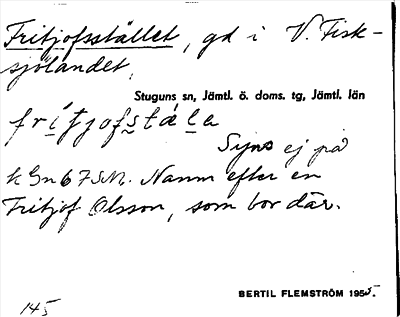 Fritjofsstället, gd i V. Fisk-
sjölandet,
Stuguns sn, Jämtl. ö. doms. tg, Jämtl. län
frítjofstál e
Syns ej på
k Gn 67 SM. Namn efter en
Fritjof Olsson, som bor där.
BERTIL FLEMSTRÖM 1955.
145